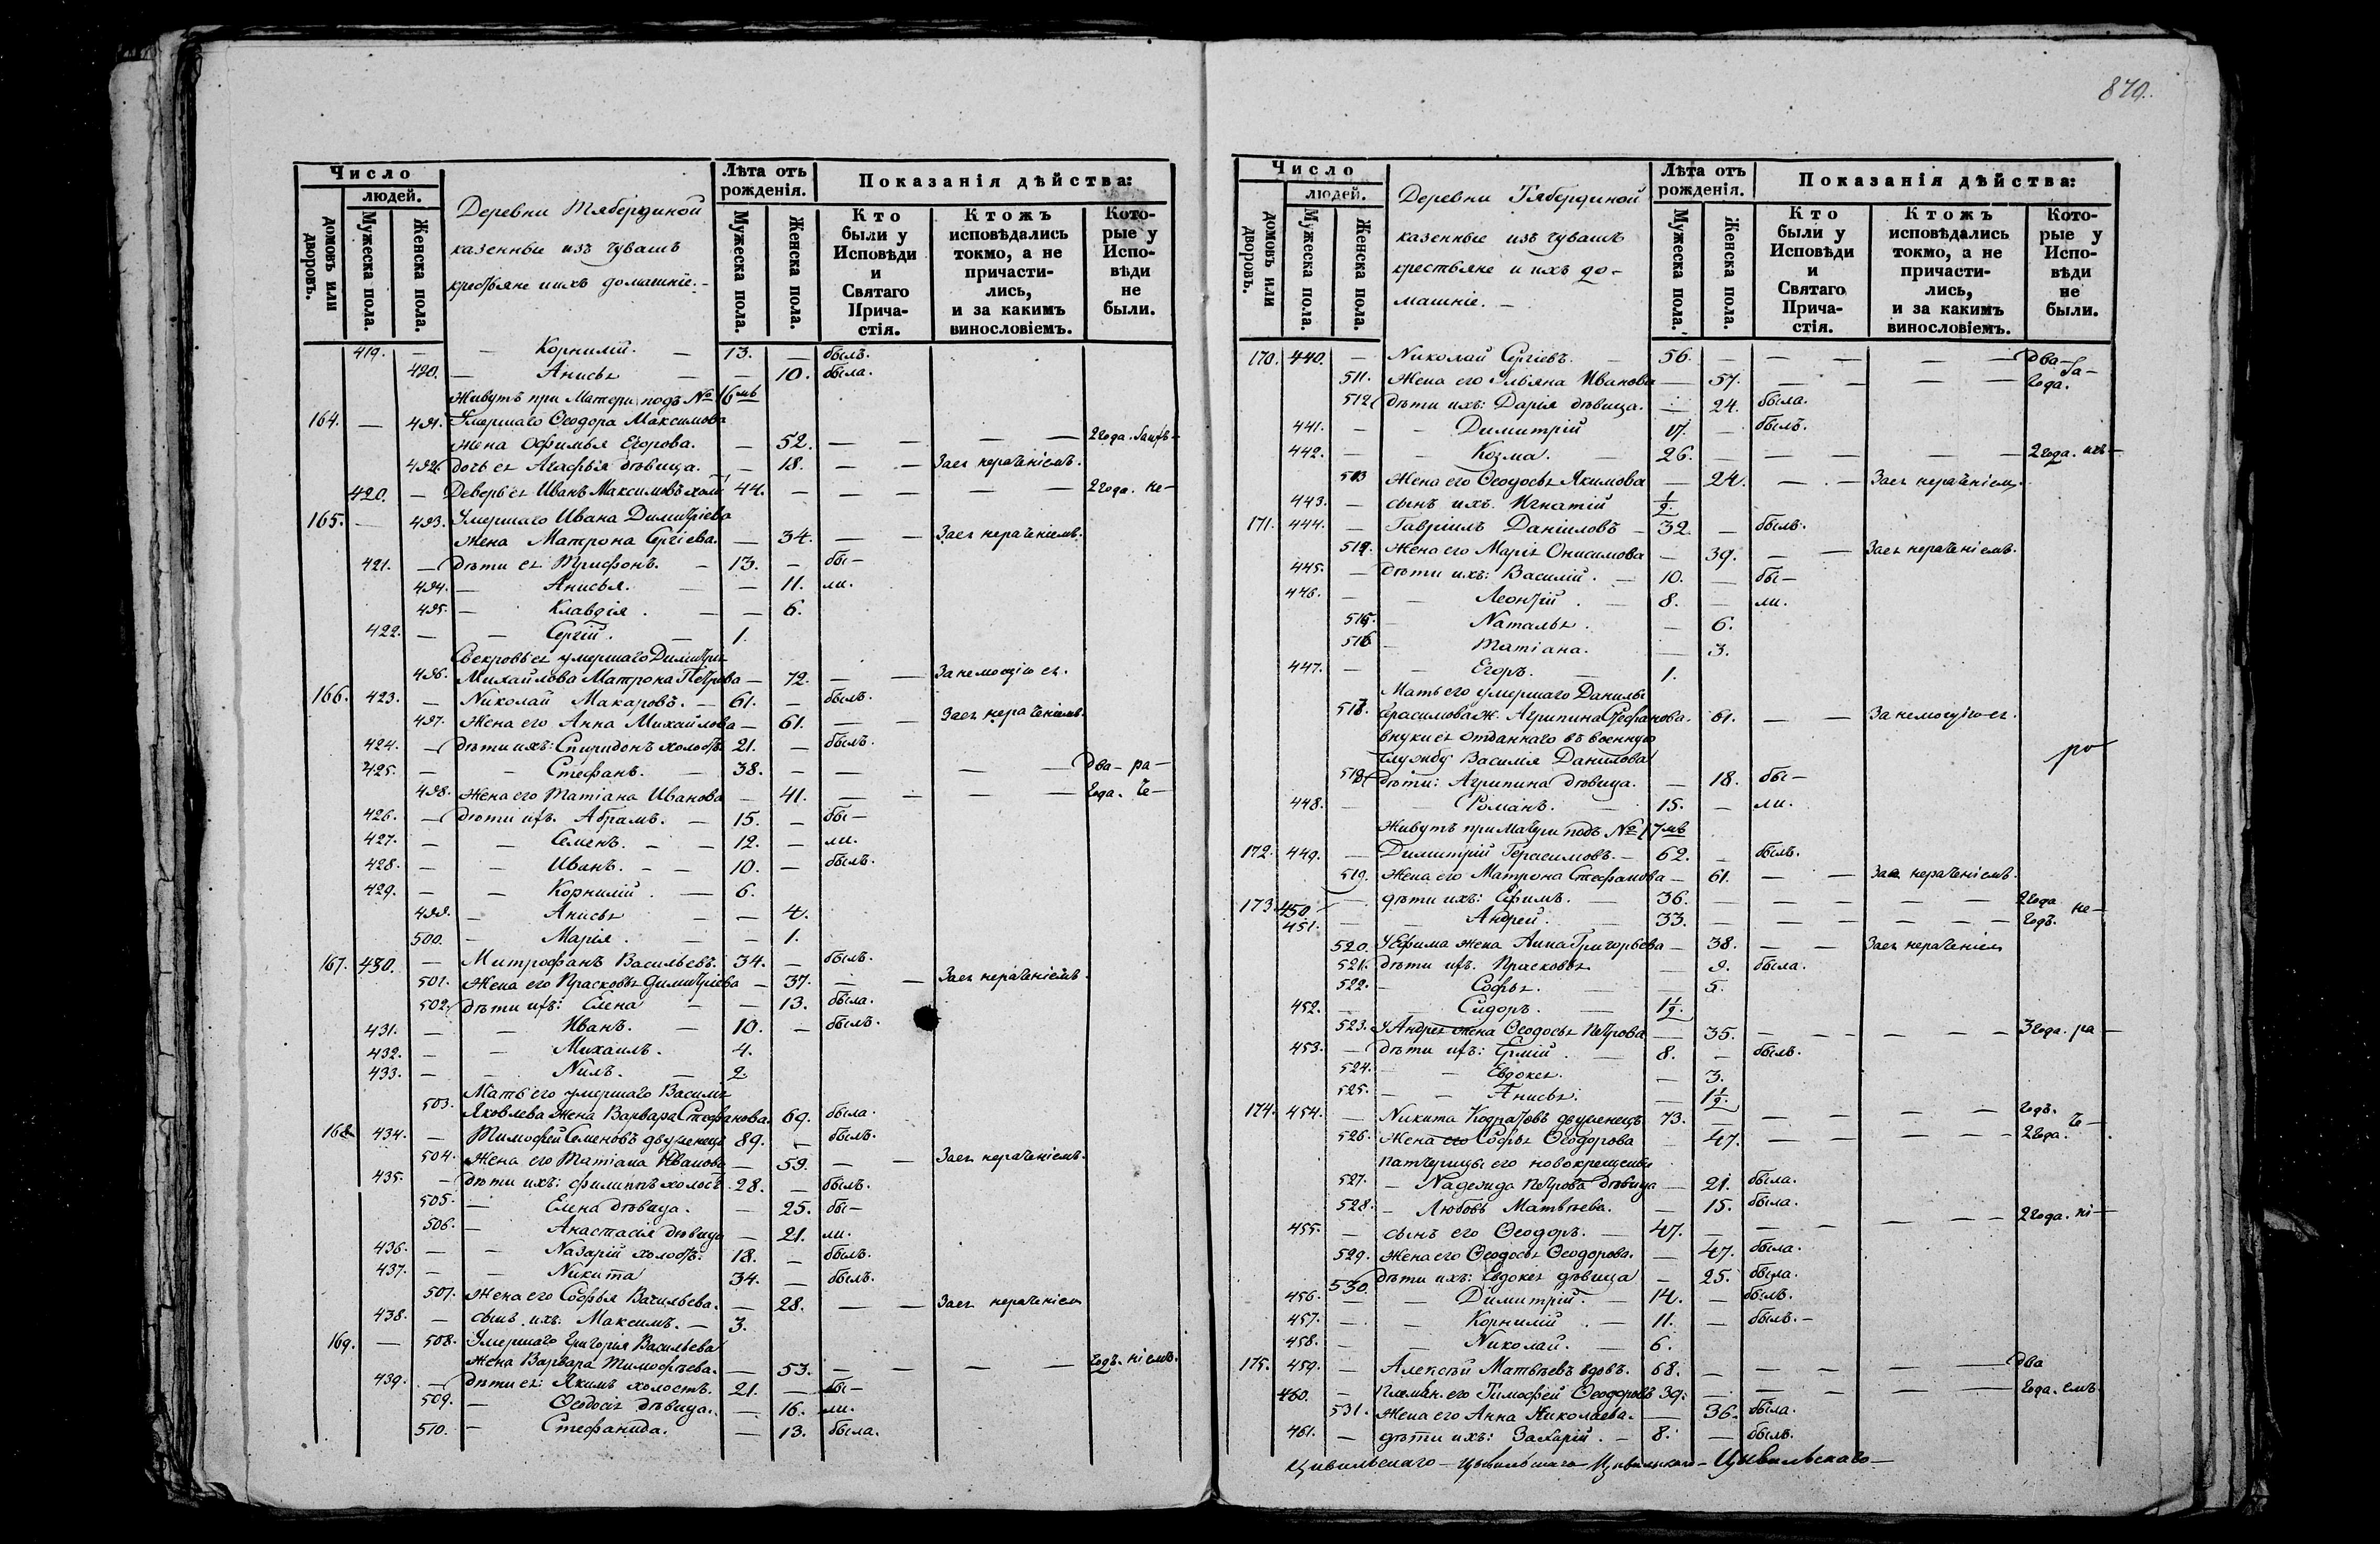 879.
Число
людей.
домовъ или дворовъ.
Мужеска пола.
Женска пола.
Деревни Тябердиной
казенные изъ чувашъ
крестьяне и ихъ домашніе. -
Лѣта отъ рожденія.
Мужеска пола.
Женска пола.
Показанія дѣйства:
Кто были у Исповѣди и Святаго Причастія.
Ктожъ исповѣдались токмо, а не причастились, и за какимъ винословіемъ.
Которые у Исповѣди не были.
419. — — Корнилій. — 13. — былъ.
490. — Анисья — — 10. была.
Живутъ при Матери подъ № 16мъ
164. — 491. Умершаго Ѳеодора Максимова
жена Офимья Егорова. — 52. — — — — 2 года.
492. дочь ея Агафья дѣвица. — 18. — — Заея нераченіемъ.
420. — Деверь ея Иванъ Максимовъ холо 44. — — — — — 2 года. не-
165. — 493. Умершаго Ивана Димитріева
жена Матрона Сергіева. — 34. — — Заея нераченіемъ.
421. — дѣти ея Трифонъ. — 13. — бы-
494. — Анисья. — — 11. ли.
495. — Клавдія. — — 6.
422. — — Сергій. — 1.
Свекровь ея умершаго Димитрія
496. Михайлова Матрона Петрова — 72. — — За немощію ея.
166. 423. — Николай Макаровъ. — 61. — былъ.
497. Жена его Анна Михайлова — 61. — — Заея нераченіемъ.
424. — дѣти ихъ: Спиридонъ холостъ. 21. — былъ.
425. — — Стефанъ. — 38. — — — — Два- ра-
498. Жена его Татіана Иванова — 41. — — — — года. че-
426. — дѣти ихъ. Абрамъ. — 15. — бы-
427. — — Семенъ. — — 12. — ли.
428. — — Иванъ. — — 10. — былъ.
429. — — Корнилій. — 6.
499. — Анисья — — 4.
500. — Марія. — — 1.
167. 430. — Митрофанъ Васильевъ. 34. — былъ.
501. Жена его Прасковья Димитріева — 37. — — Заея нераченіемъ.
502. дѣти ихъ: Елена — — 13. была.
431. — — Иванъ. — 10. — былъ.
432. — — Михаилъ. 4.
433. — — Нилъ. — 2.
Мать его умершаго Василія
503. Яковлева жена Варвара Стефанова. 69. была.
168. 434. — Тимофей Семеновъ двуженецъ 89. — былъ.
504. Жена его Татіана Иванова — 59. — — Заея нераченіемъ.
435. — дѣти ихъ: Филиппъ холостъ 28. — былъ.
505. — Елена дѣвица. — 25. бы-
506. — Анастасія дѣвица — 21. ли.
436. — — Назарій холостъ. 18. — былъ.
437. — — Никита 34. — былъ.
507. Жена его Софья Васильева. — 28. — — Заея нераченіем
438. — сынъ ихъ: Максимъ. — 3.
169. — 508. Умершаго Григорія Васильева
жена Варвара Тимофѣева. — 53. — — — — годъ. ніемъ.
439. — дѣти ея: Якимъ холостъ. 21. — бы-
509. — Ѳеодосія дѣвица. — 16. ли.
510. — Стефанида. — 13. была.
Число
людей.
домовъ или дворовъ.
Мужеска пола.
Женска пола.
Деревни Тябердиной
казенные изъ чувашъ
крестьяне и ихъ до-
машніе. —
Лѣта отъ рожденія.
Мужеска пола.
Женска пола.
Показанія дѣйства:
Кто были у Исповѣди и Святаго Причастія.
Ктожъ исповѣдались токмо, а не причастились, и за какимъ винословіемъ.
Которые у Исповѣди не были.
170. 440. — Николай Сергіевъ. — 56. — — — — — Два- За-
511. Жена его Ульяна Иванова — 57. — — — — года.
512. дѣти ихъ: Дарія дѣвица. — 24. была.
441. — — Димитрій 17. — былъ.
442. — — Козма. 26. — — — — — 2 года.
513 Жена его Ѳеодосья Якимова — 24. — — Заея нераченіем.
443. — сынъ ихъ. Игнатій 1/2.
171. 444. — Гавріилъ Даніиловъ — 32. — былъ.
514. Жена его Марія Онисимова — 39. — — Заея нераченіемъ.
445. — дѣти ихъ: Василій. — 10. — бы-
446. — — Леонтій. — 8. — ли.
515. — Наталья. — 6.
516 — Татіана. — 3.
447. — — Егоръ. — 1.
Мать его умершаго Данилы
517. Герасимова ж. Агрипина Стефанова. 61. — — За немощію ея.
внуки ея отданнаго въ военную
службу Василія Данилова
ра
518. дѣти: Агрипина дѣвица. — 18. бы-
448. — — Романъ. — 15. — ли.
Живутъ при Матери подъ № 17мъ
172. 449. — Димитрій Герасимовъ. — 62. — былъ.
519. Жена его Матрона Стефанова — 61. — — Заея нераченіемъ.
173. 450. — дѣти ихъ: Ефимъ. — 36. — — — — — 2 года не-
451. — — Андрей. — 33. — — — — — годъ.
520. У Ефима жена Анна Григорьева — 38. — — Заея нераченіем
521. дѣти ихъ. Прасковья — 9. была.
522. — Софья. — 5.
452. — — Сидоръ. — 1 1/2.
523. У Андрея жена Ѳеодосья Петрова — 35. — — — — 3 года. ра —
453. — дѣти ихъ: Ермій. — 8. — былъ.
524. — Евдокея. — 3.
525. — Анисья. — 1 1/2.
174. 454. — Никита Кодратовъ двуженецъ 73. — — — — — годъ. че-
526. Жена его Софья Ѳеодорова — 47. — — — — 2 года.
Патчерицы его новокрещены
527. — Надежда Петрова дѣвица — 21. была.
528. — Любовь Матвѣева. — 15. была.
455. — сынъ его Ѳеодоръ. — 47. — — — — — 2 года. ні—
529. Жена его Ѳеодосья Ѳеодорова. — 47. была.
530. дѣти ихъ: Евдокея дѣвица — 25. была.
456. — — Димитрій. — 14. — былъ.
457. — — Корнилій. — 11. — былъ. —
458. — — Николай. — 6.
175. 459. — Алексѣй Матвѣевъ вдовъ. 68. — — — — — Два
460. — Племян. его Тимофей Ѳеодоровъ 39. — — — — — года. емъ
531. Жена его Анна Николаева. — 36. была.
461. — дѣти ихъ: Захарій. — 8. — былъ.
Цивильскаго — Цывильскаго — Цивильскаго — Цивильскаго —